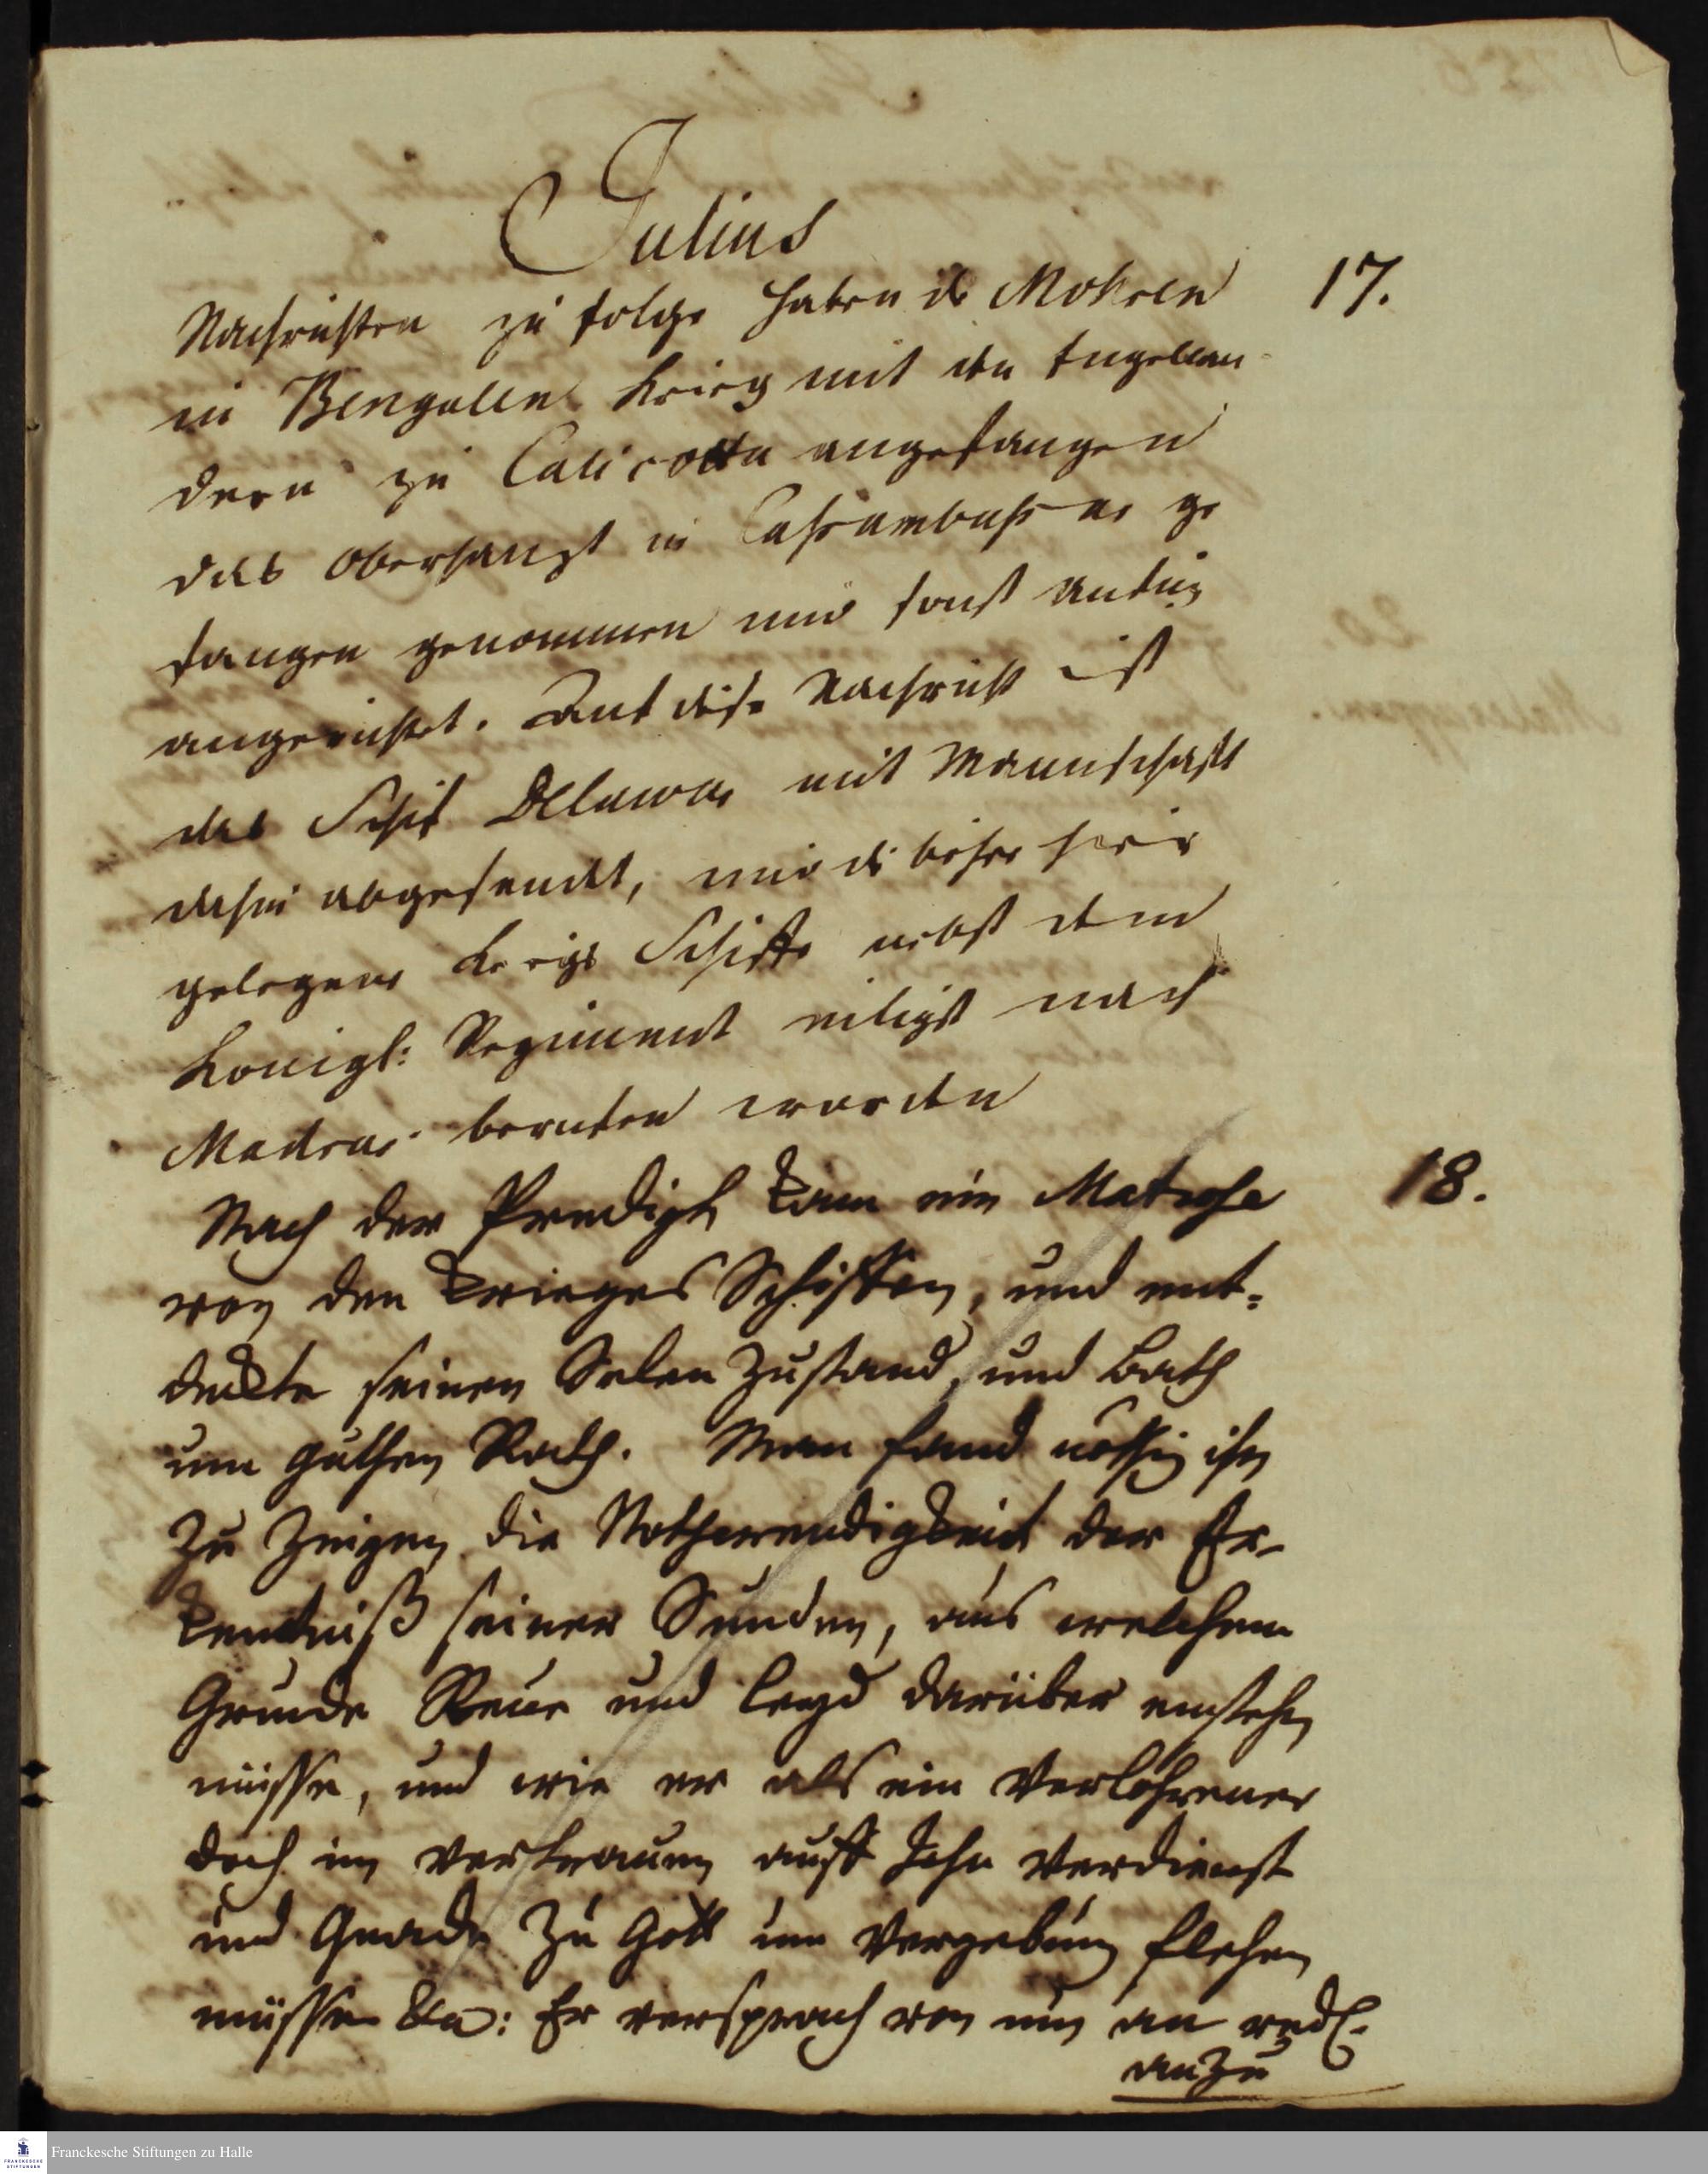 Julius
17.
Nachrichten zu folge haben die Mohren
in Bengalen Krieg mit den Engellan-
dern zu Calicotta angefangen
das Oberhaupt in Cassambussar ge
fangen genommen und sonst
angerichtet. Auf diese Nachricht ist
das Schif Delawar mit Mannschafft
dahin abgesandt, und die bisher hier
gelegene Kriegs Schiffe nebst dem
Konigl: Regiment eiligst nach
Madras beruffen worden
18.
Nach der Predigt kam ein Matrose
von den Krieges Schiffen, und ent-
deckte seinen Selen Zustand, und bath
um guthen Rath. Man fand nöthig ihn
zu zeigen die Nothwendigkeit der Er-
kendtniß seiner Sunden, aus welchem
Grunde Reue und Leyd darüber enstehn
müsse, und wie er als ein Verlohrener
doch im vertrauen auff Jesu Verdienst
und Gnade zu Gott um Vergebung flehen
müsse &c: Er versprach von nun an redl.
anzu
Franckesche Stiftungen zu Halle